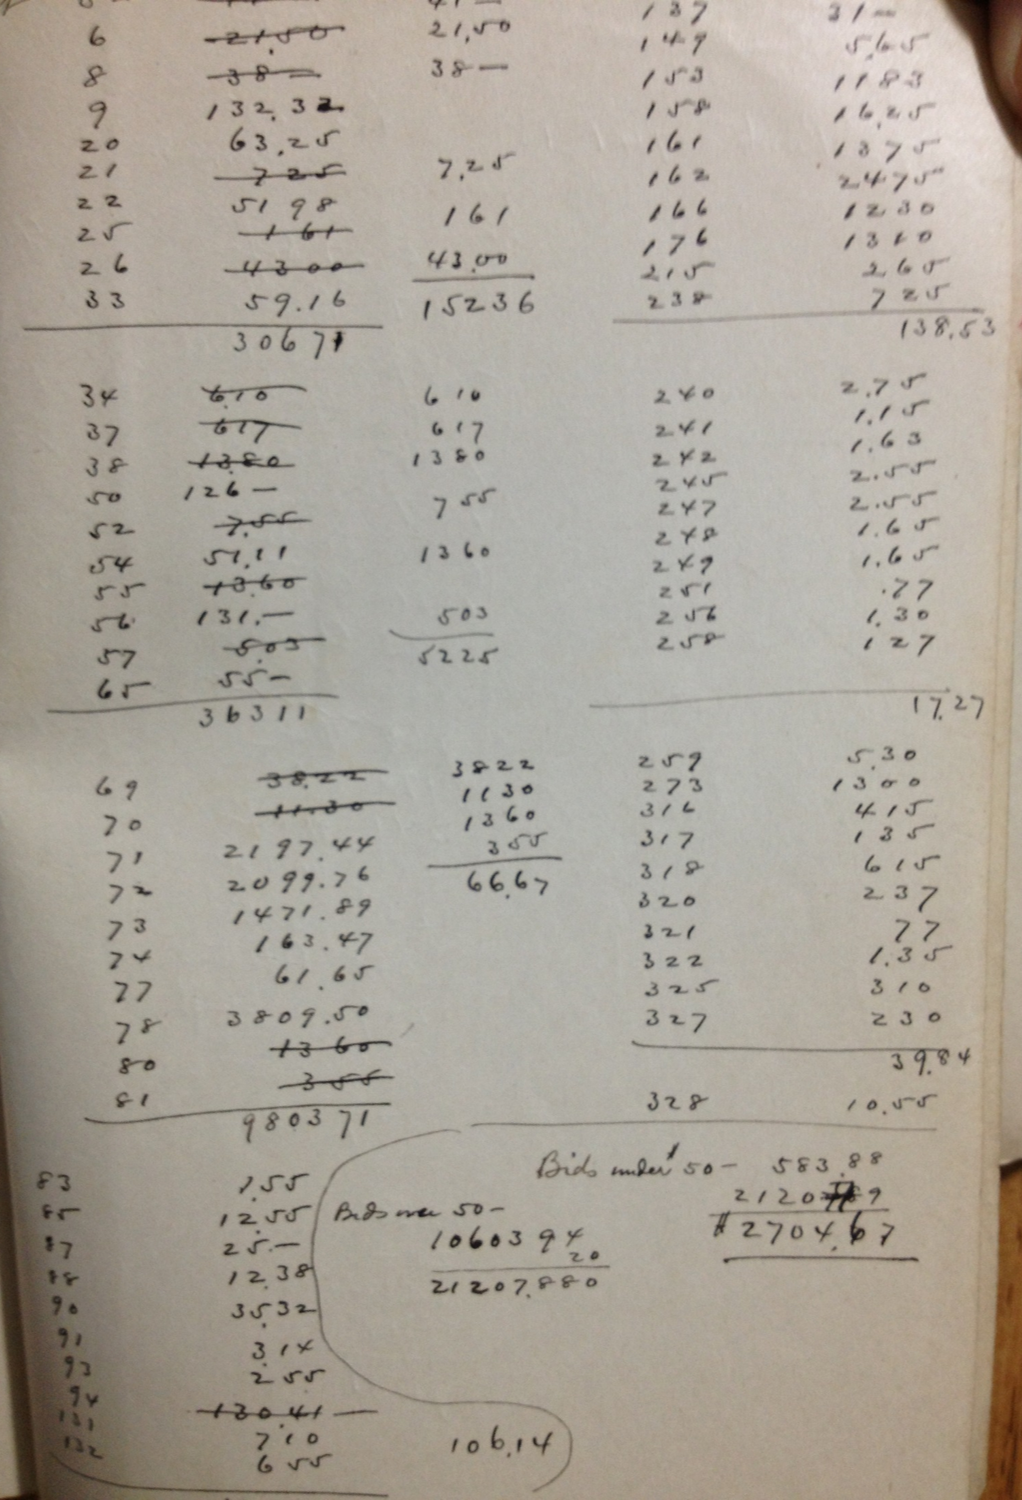 41 —
137 31 —
6 21.50 21,50 149 5.65
8 38 — 38 — 153 1183
9 132.32 158 16.25
20 63.25 161 1375
21 725 7.25 162 2475
22 5198 166 1230
25 161 161 176 1310
26 4300 43.00 215 265
33 59.16 15236 238 725
30671 138.53
34 6.10 610 240 2.75
37 617 617 241 1.15
38 1380 1380 242 1.63
50 126 — 245 2.55
52 7.55 755 247 2.55
54 51.11 1360 248 1.65
55 13.60 249 1.65
56 131.— 251 .77
57 5.03 503 256 1.30
65 55 — 5225 258 127
36311 17.27
69 38.22 3822 259 5.30
70 11.30 1130 273 1300
71 2197.44 1360 316 415
72 2099.76 355 317 135
73 1471.89 66.67 318 615
74 163.47 320 237
77 61.65 321 77
78 3809.50 322 1.35
80 1360 325 310
81 355 327 230
980371 39.84
328 10.55
Bids under $50 — 583.88
83 1.55 2120 9
85 12.55 Bids over 50 — $2704.67
87 25.— 1060394
88 12.38 20
90 35.32 21207.880
91 3.14
93 2.55
94 130.41 —
131 710 106.14
132 655